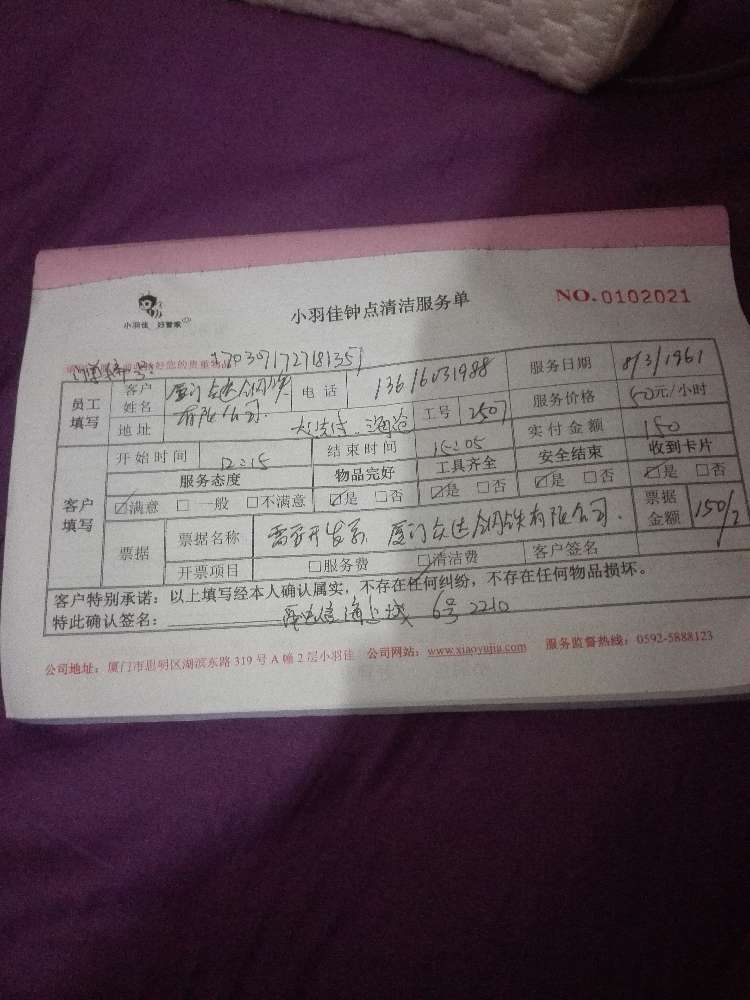 小羽佳 好管家
小羽佳钟点清洁服务单
NO.0102021
员工填写
客户姓名
有限公司
电话
13616031988
服务日期
地址
工号
2507
服务价格
50元/小时
实付金额
150
客户填写
开始时间
12:15
结束时间
15:05
服务态度
物品完好
工具齐全
安全结束
收到卡片
☑满意 □一般 □不满意
☑是 □否
☑是 □否
☑是 □否
☑是 □否
票据
票据名称
钢铁有限公司
票据金额
150/2
开票项目
□服务费
☑清洁费
客户签名
客户特别承诺：以上填写经本人确认属实，不存在任何纠纷，不存在任何物品损坏。
特此确认签名：
6号2210
公司地址：厦门市思明区湖滨东路319号A幢2层小羽佳 公司网站：www.xiaoyujia.com 服务监督热线：0592-5888123